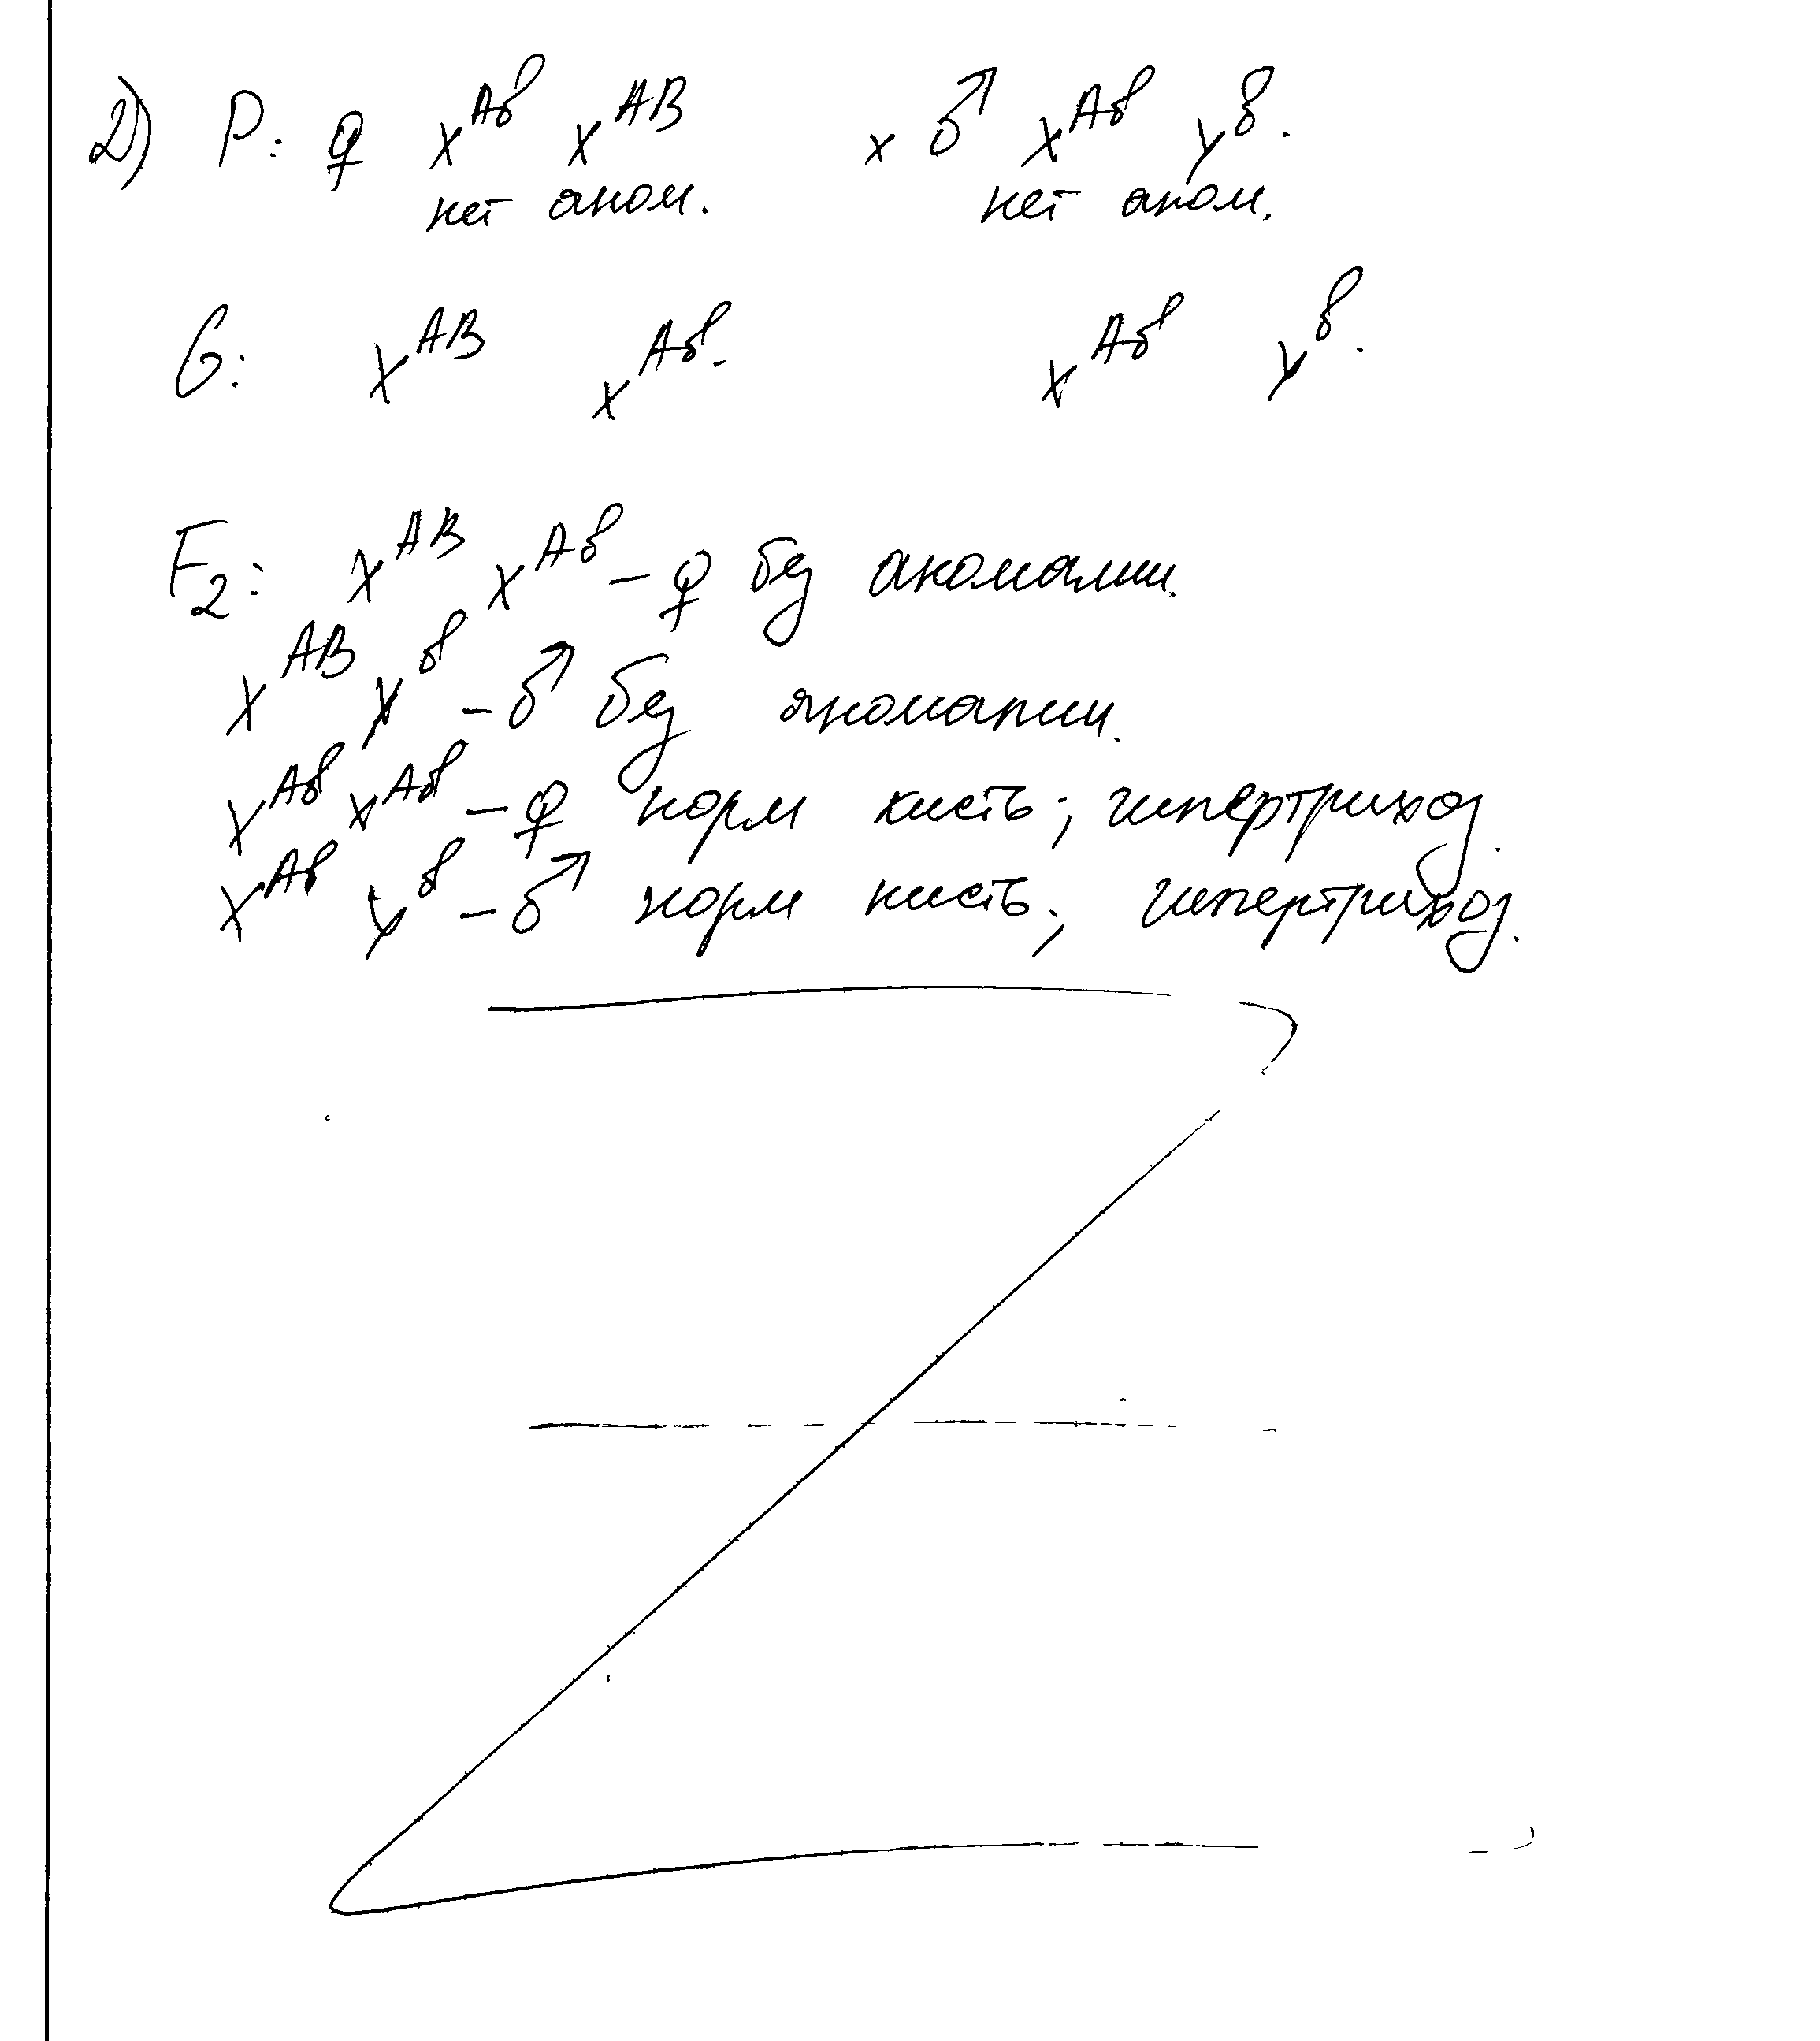 2) P: ♀ X^Aб X^AB x ♂ X^Aб Y^б.
нет аном. нет аном.
G: X^AB X^Aб. X^Aб Y^б.
F₂: X^AB X^Aб – ♀ без аномалии.
X^AB Y^б – ♂ без аномалии.
X^Aб X^Aб – ♀ норм кисть; гипертрихоз.
X^Aб Y^б – ♂ норм кисть; гипертрихоз.